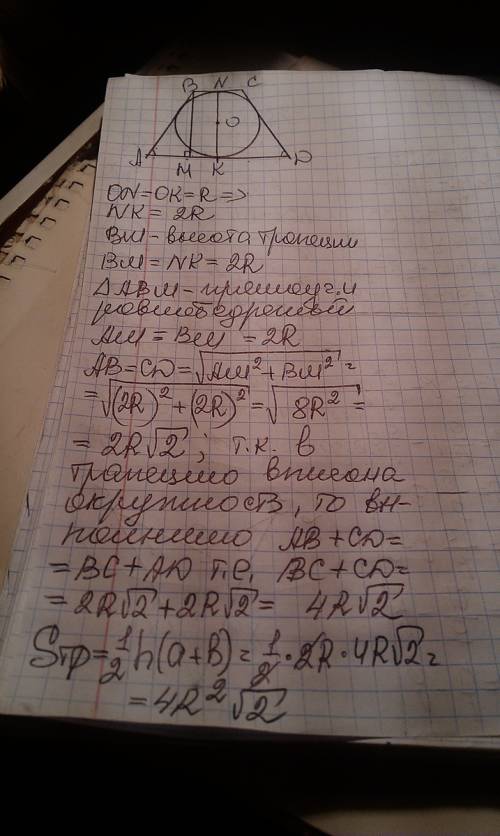 B N C
O
A M K D
ON=OK=R =>
NK = 2R
BM - высота трапеции
BM = NK = 2R
ΔABM - прямоуг. и
равнобедренный
AM = BM = 2R
AB = CD = √(AM² + BM²) =
= √((2R)² + (2R)²) = √(8R²) =
= 2R√2 ; т.к. в
трапецию вписана
окружность, то вы-
полнимо AB + CD =
= BC + AD т.е. BC + CD =
= 2R√2 + 2R√2 = 4R√2
Sтр = 1/2 h(a+b) = 1/2 · 2R · 4R√2 =
= 4R²√2